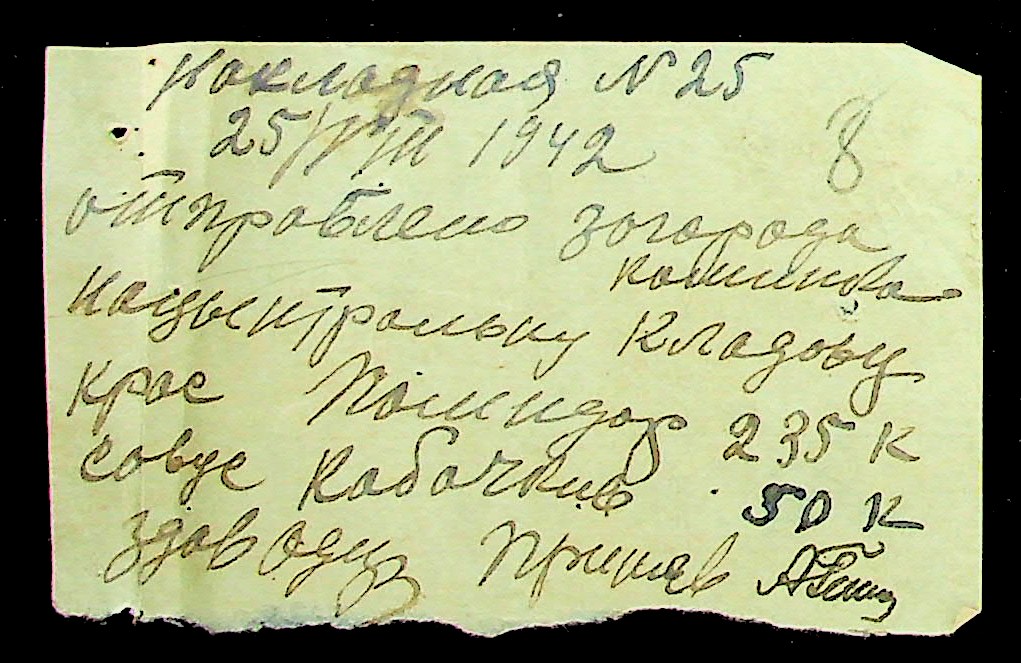 Накладная N 25
25/VIII 1942
8
отправлено зогорода
камынка
нацынтральну кладову
крас Помидор 235 к
совус Кабачкив 50 к
здав Приняв